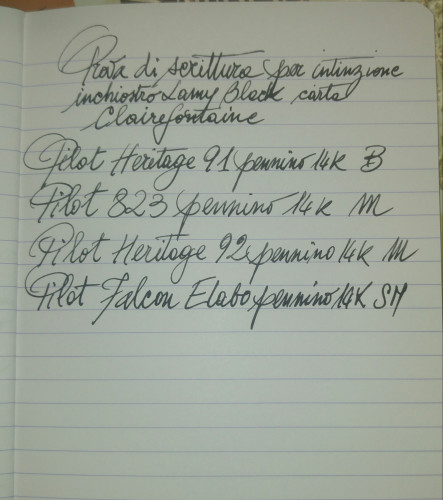 Prova di scrittura per intinzione
inchiostro Lamy Black carta
Clairefontaine
Pilot Heritage 91 pennino 14k B
Pilot 823 pennino 14k M
Pilot Heritage 92 pennino 14k M
Pilot Falcon Elabo pennino 14K SM